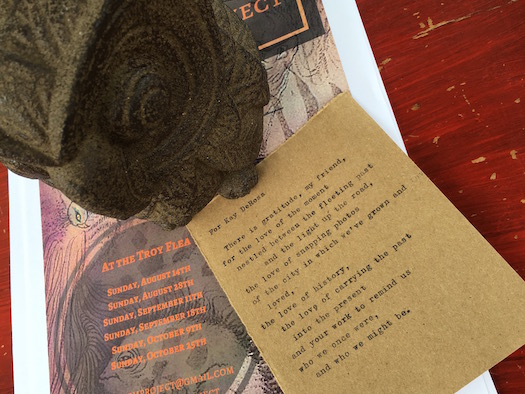 JECT
For Kay DeRosa
There is gratitude, my friend,
for the love of the moment
nestled between the fleeting past
and the light up the road,
the love of snapping photos
of the city in which we've grown and
loved,
the love of history,
the love of carrying the past
into the present
and your work to remind us
who we once were,
and who we might be.
AT THE TROY FLEA
SUNDAY, AUGUST 14TH
SUNDAY, AUGUST 28TH
SUNDAY, SEPTEMBER 11TH
SUNDAY, SEPTEMBER 18TH
SUNDAY, OCTOBER 9TH
SUNDAY, OCTOBER 25TH
PROJECT@GMAIL.COM
JECT